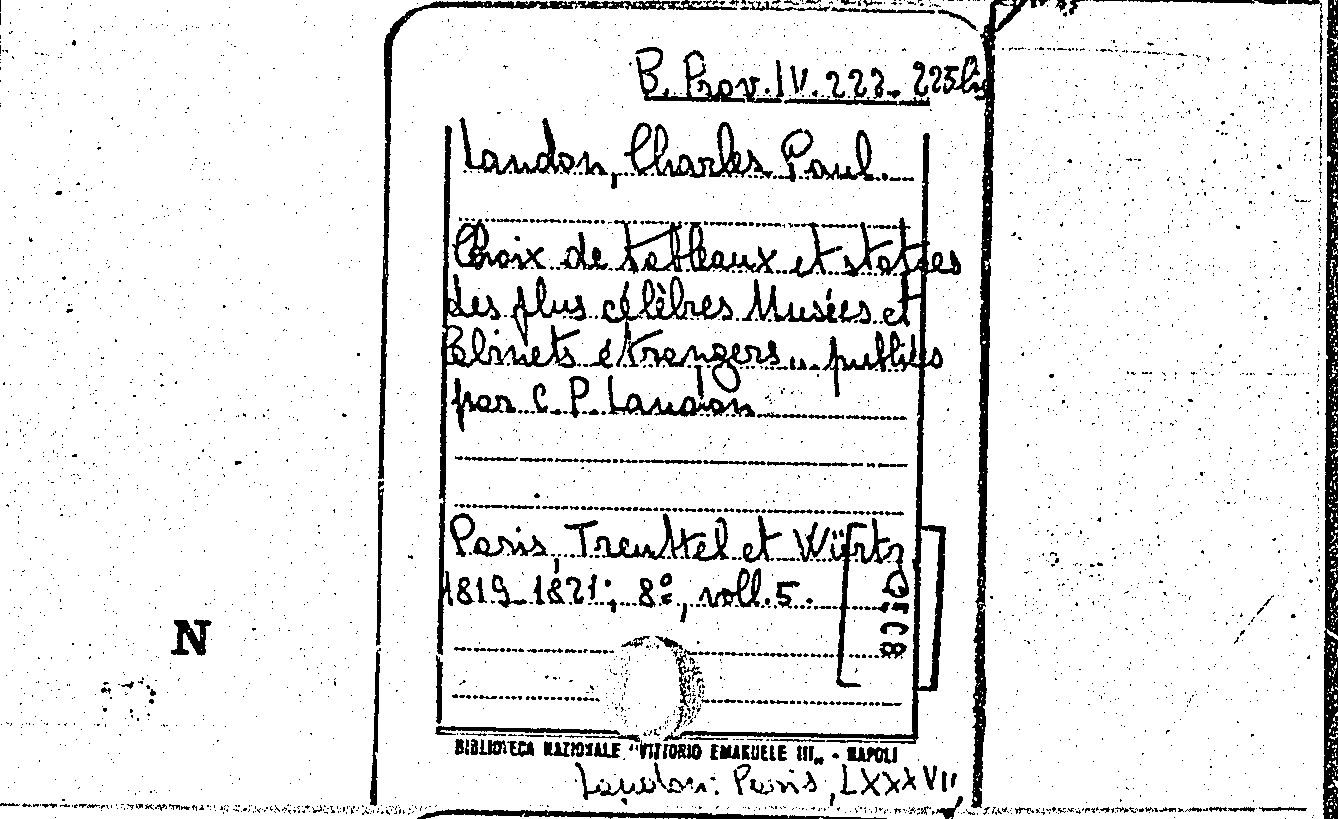 B. Prov. IV. 223-225bis
Landon, Charles Paul.
Choix de tableaux et statues
des plus célèbres Musées et
Cabinets étrangers... publiées
par C. P. Landon
Paris, Treuttel et Würtz
1819-1821; 8º, voll. 5.
N
BIBLIOTECA NAZIONALE "VITTORIO EMANUELE III„ - NAPOLI
Landon: Paris, LXXXVII,